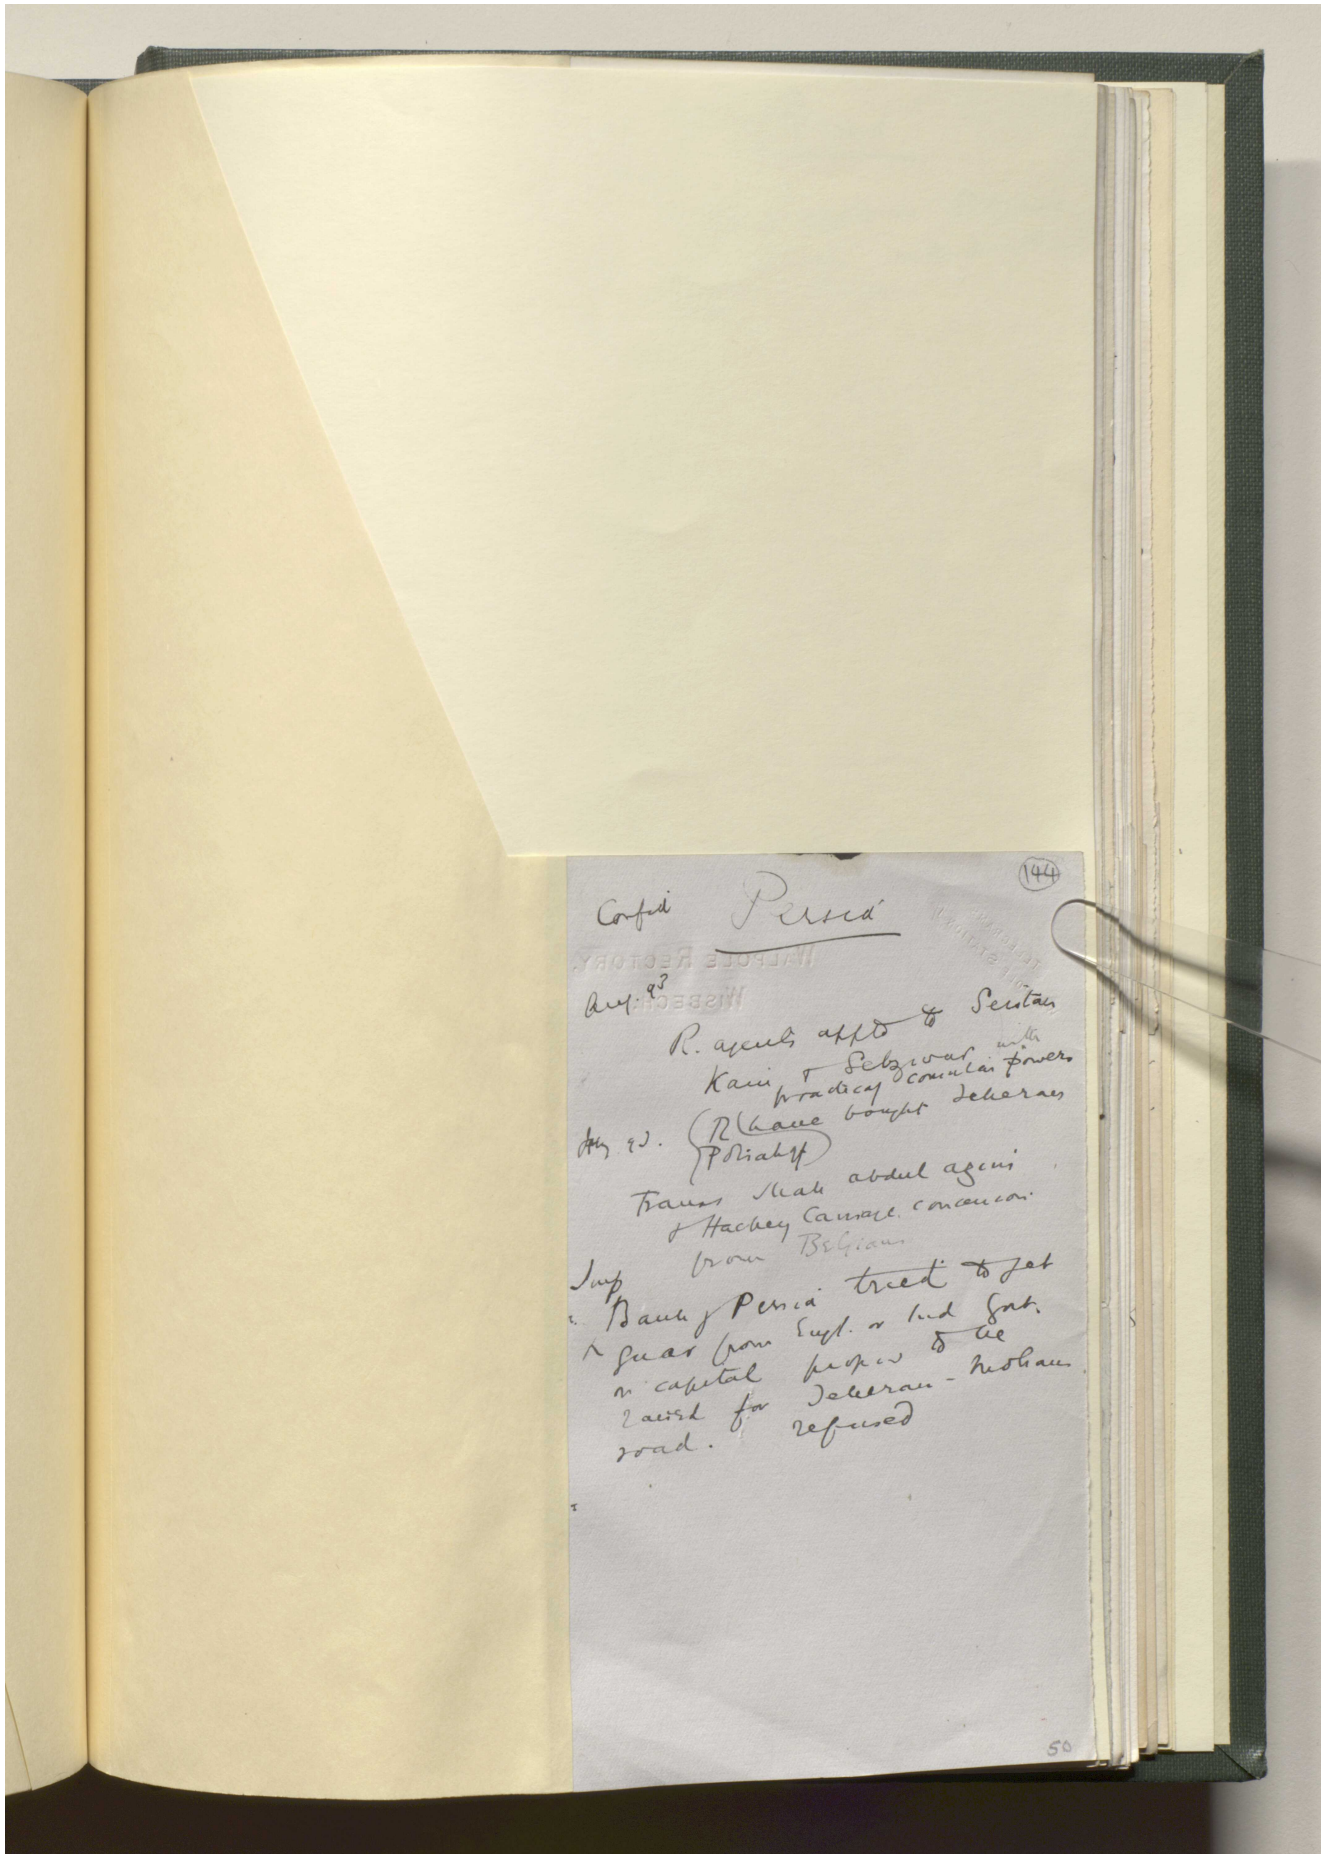 144
Confid Persia
WALPOLE RECTORY,
WISBECH.
Aug. 93
R. agents appd to Seistan
Kain & Sebzwar with
practical consular powers
93. (R have bought Teheran
Trams Shah abdul azim
& Hackney Carriage concession
from Belgians
Imp
Bank of Persia tried to get
guar from Engl. or Ind Govt.
on capital propos to be
raised for Teheran -
road. refused
50